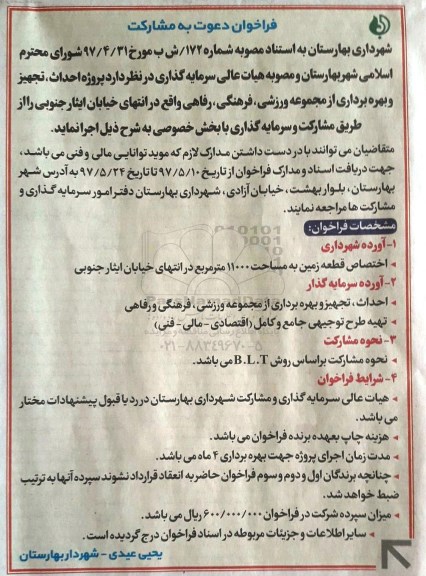 فراخوان دعوت به مشارکت
شهرداری بهارستان به استناد مصوبه شماره ۱۷۲/ش ب مورخ ۹۷/۴/۳۱ شورای محترم
اسلامی شهر بهارستان و مصوبه هیات عالی سرمایه گذاری در نظر دارد پروژه احداث، تجهیز
و بهره برداری از مجموعه ورزشی، فرهنگی، رفاهی واقع در انتهای خیابان ایثار جنوبی را از
طریق مشارکت و سرمایه گذاری با بخش خصوصی به شرح ذیل اجرا نماید.
متقاضیان می توانند با در دست داشتن مدارک لازم که موید توانایی مالی و فنی می باشد،
جهت دریافت اسناد و مدارک فراخوان از تاریخ ۹۷/۵/۱۰ تا تاریخ ۹۷/۵/۲۴ به آدرس شهر
بهارستان، بلوار بهشت، خیابان آزادی، شهرداری بهارستان دفتر امور سرمایه گذاری و
مشارکت ها مراجعه نمایند.
مشخصات فراخوان:
۱- آورده شهرداری
اختصاص قطعه زمین به مساحت ۱۱۰۰۰ مترمربع در انتهای خیابان ایثار جنوبی
۲- آورده سرمایه گذار
احداث، تجهیز و بهره برداری از مجموعه ورزشی، فرهنگی و رفاهی
تهیه طرح توجیهی جامع و کامل (اقتصادی - مالی - فنی)
۰۲۱-۸۸۳۴۹۶۷۰-۵
۳- نحوه مشارکت
نحوه مشارکت براساس روش B.L.T می باشد.
۴- شرایط فراخوان
هیات عالی سرمایه گذاری و مشارکت شهرداری بهارستان در رد یا قبول پیشنهادات مختار
می باشد.
هزینه چاپ بعهده برنده فراخوان می باشد.
مدت زمان اجرای پروژه جهت بهره برداری ۴ ماه می باشد.
چنانچه برندگان اول و دوم و سوم فراخوان حاضر به انعقاد قرارداد نشوند سپرده آنها به ترتیب
ضبط خواهد شد.
میزان سپرده شرکت در فراخوان ۶۰۰/۰۰۰/۰۰۰ ریال می باشد.
سایر اطلاعات و جزییات مربوطه در اسناد فراخوان درج گردیده است.
یحیی عیدی - شهردار بهارستان